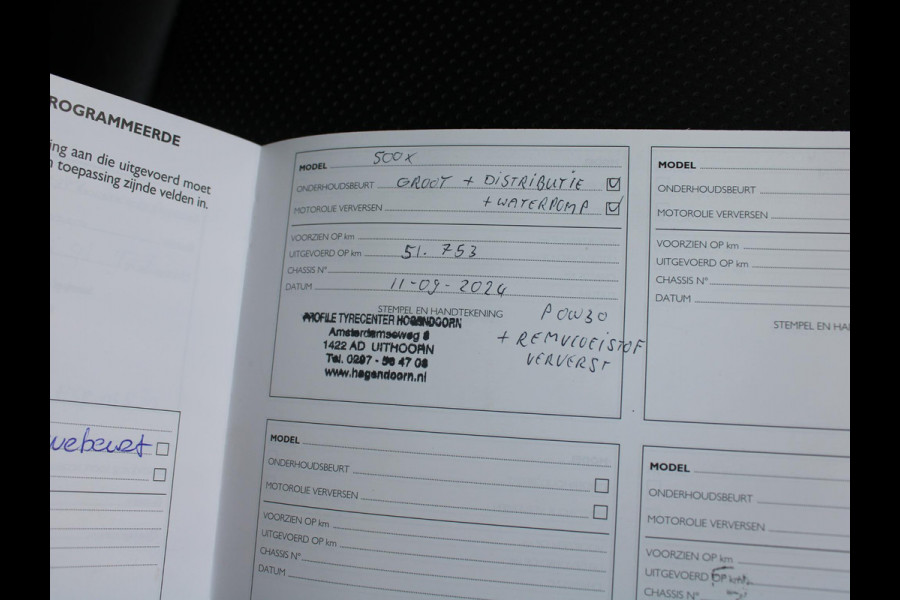 ROGRAMMEERDE
ing aan die uitgevoerd moet
toepassing zijnde velden in.
MODEL 500X
ONDERHOUDSBEURT GROOT + DISTRIBUTIE
MOTOROLIE VERVERSEN + WATERPOMP
VOORZIEN OP km
UITGEVOERD OP km 51.753
CHASSIS N°
DATUM 11-09-2024
STEMPEL EN HANDTEKENING
PROFILE TYRECENTER HOGENDOORN
Amsterdamseweg 8
1422 AD UITHOORN
Tel. 0297 - 56 47 08
www.hogendoorn.nl
POW30
+ REMVLOEISTOF
VERVERST
MODEL
ONDERHOUDSBEURT
MOTOROLIE VERVERSEN
VOORZIEN OP km
UITGEVOERD OP km
CHASSIS N°
DATUM
STEMPEL EN HA
MODEL
ONDERHOUDSBEURT
MOTOROLIE VERVERSEN
VOORZIEN OP km
UITGEVOERD OP km
CHASSIS N°
DATUM
MODEL
ONDERHOUDSBEURT
MOTOROLIE VERVERSEN
VOORZIEN OP km
UITGEVOERD OP km
CHASSIS N°